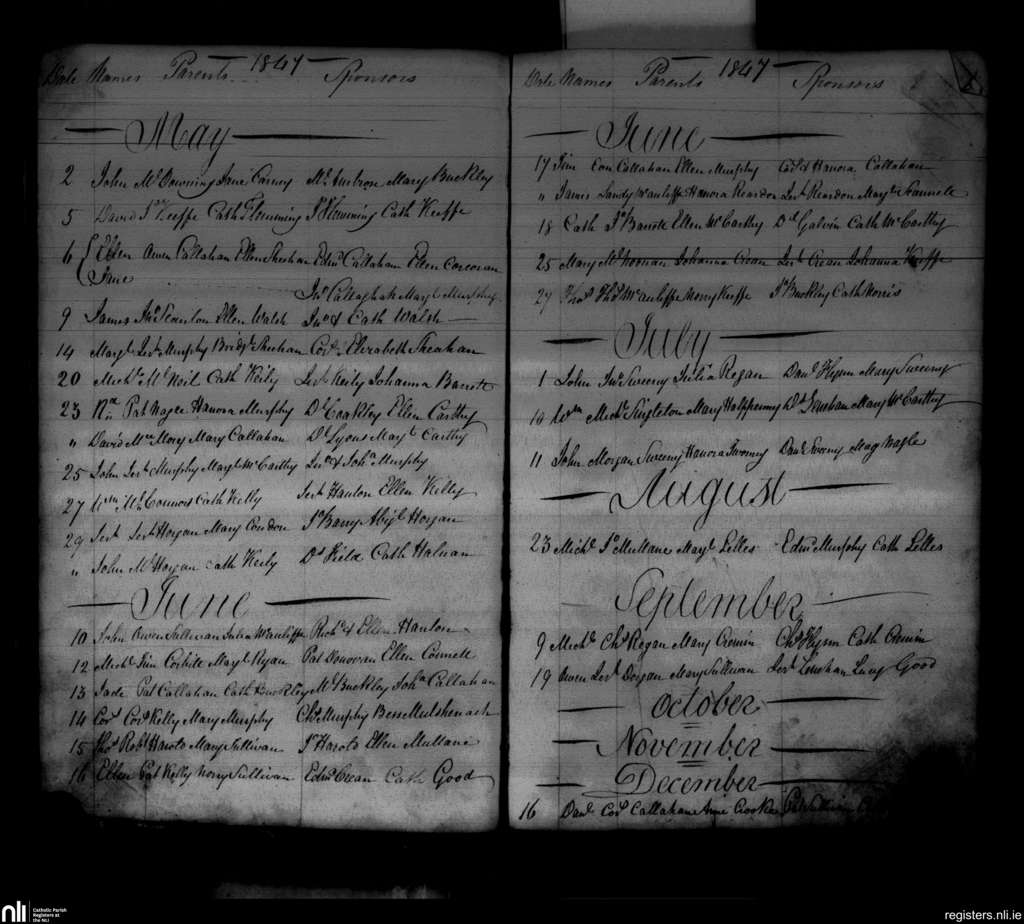 Date Names Parents 1847 Sponsors
May
2 John Ml Downing Jane Carney Ml Ambron Mary Buckley
5 David Keeffe Cath Flemming Jo Flemming Cath Keeffe
6 Ellen Owen Callahan Ellen Sheehan Edmd Callahan Ellen Corcoran
Jane
Jno Callaghah Margt Murphy
9 James Jno Scanlon Ellen Walsh Jno & Cath Walsh
14 Margt Jerh Murphy Bridgt Sheehan Cors Elizabeth Sheahan
20 Michl Ml Neil Cath Keily Jerh Keily Johanna Barrett
23 Pat Nagee Hanora Murphy Dl Coakley Ellen Carthy
" David Mory Mary Callahan Dl Lyons Margt Carthy
25 John Jerh Murphy Margt McCarthy Jno & Joha Murphy
27 Wm Ml Connors Cath Kelly Jerh Hanlon Ellen Kelly
29 Jerh Jerh Horgan Mary Condon Jo Barry Abigl Horgan
" John Ml Horgan Cath Keily Ds Field Cath Halnan
June
10 John Owen Sullivan Julia McAuliffe Richd & Ellen Hanlon
12 Michl Tim Corbitt Margt Ryan Pat Donovan Ellen Connell
13 Jade Pat Callahan Cath Buckley Ml Buckley Joha Callahan
14 Cors Cors Kelly Mary Murphy Chs Murphy Bess
15 Thos Robt Harold Mary Sullivan Jo Harold Ellen Mullane
16 Ellen Pat Kelly Norry Sullivan Edmd Crean Cath Good
Date Names Parents 1847 Sponsors
June
17 Tim Con Callahan Ellen Murphy Cors & Hanora Callahan
" James Sandy McAuliffe Hanora Reardon Jerh Reardon Margt
18 Cath Jo Barrott Ellen McCarthy Dl Galvin Cath McCarthy
25 Mary Ml Noonan Johanna Crean Jerh Crean Johanna Keeffe
27 Thos Thos McAuliffe Norry Keeffe Jo Buckley Cath Norris
July
1 John Jno Sweeny Julia Regan Danl Flynn Mary Sweeny
10 Wm Michl Singleton Mary Halppenny Ds Lenehan Mary McCarthy
11 John Morgan Sweeny Hanora Danl Sweeny Mag Nagle
August
23 Michl Jo Mullane Margt Lilles Edmd Murphy Cath Lilles
September
9 Michl Chs Regan Mary Cronin Chs Flynn Cath Cronin
19 Owen Jerh Dorgan Mary Sullivan Jerh Lenehan Lucy Good
October
November
December
16 Danl Cors Callahan Anne Pat Sullivan
nli Catholic Parish
Registers at
the NLI
registers.nli.ie